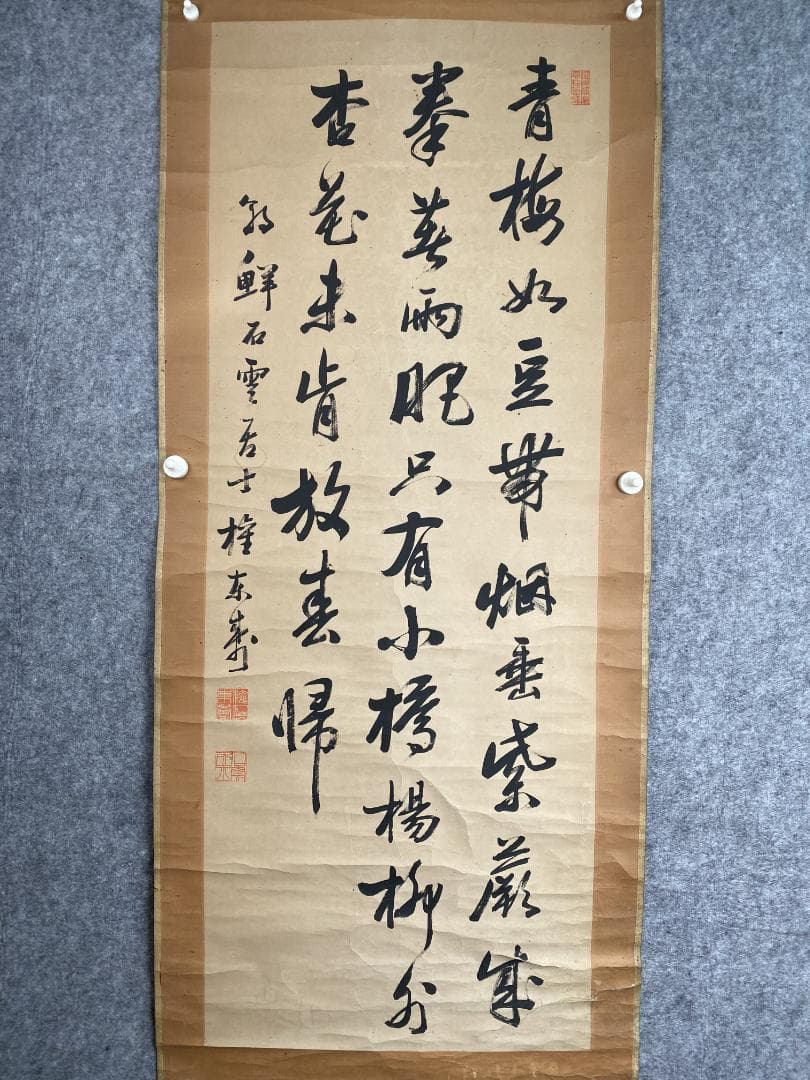 青梅如豆帶烟垂紫蕨成
拳莫雨肥只有小橋楊柳外
杏花未肯放春歸
朝鮮石雲居士權東壽